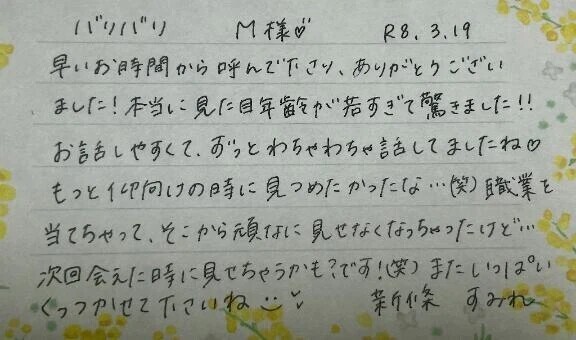 バリバリ M様♡ R8.3.19
早いお時間から呼んで下さり、ありがとうござい
ました!本当に見た目年齢が若すぎて驚きました!!
お話しやすくて、ずっとわちゃわちゃ話してましたね♡
もっと仰向けの時に見つめたかったな…(笑)職業を
当てちゃって、そこから頑なに見せなくなっちゃったけど…
次回会えた時に見せちゃうかも?です!(笑)またいっぱい
くっつかせて下さいね 新條 すみれ